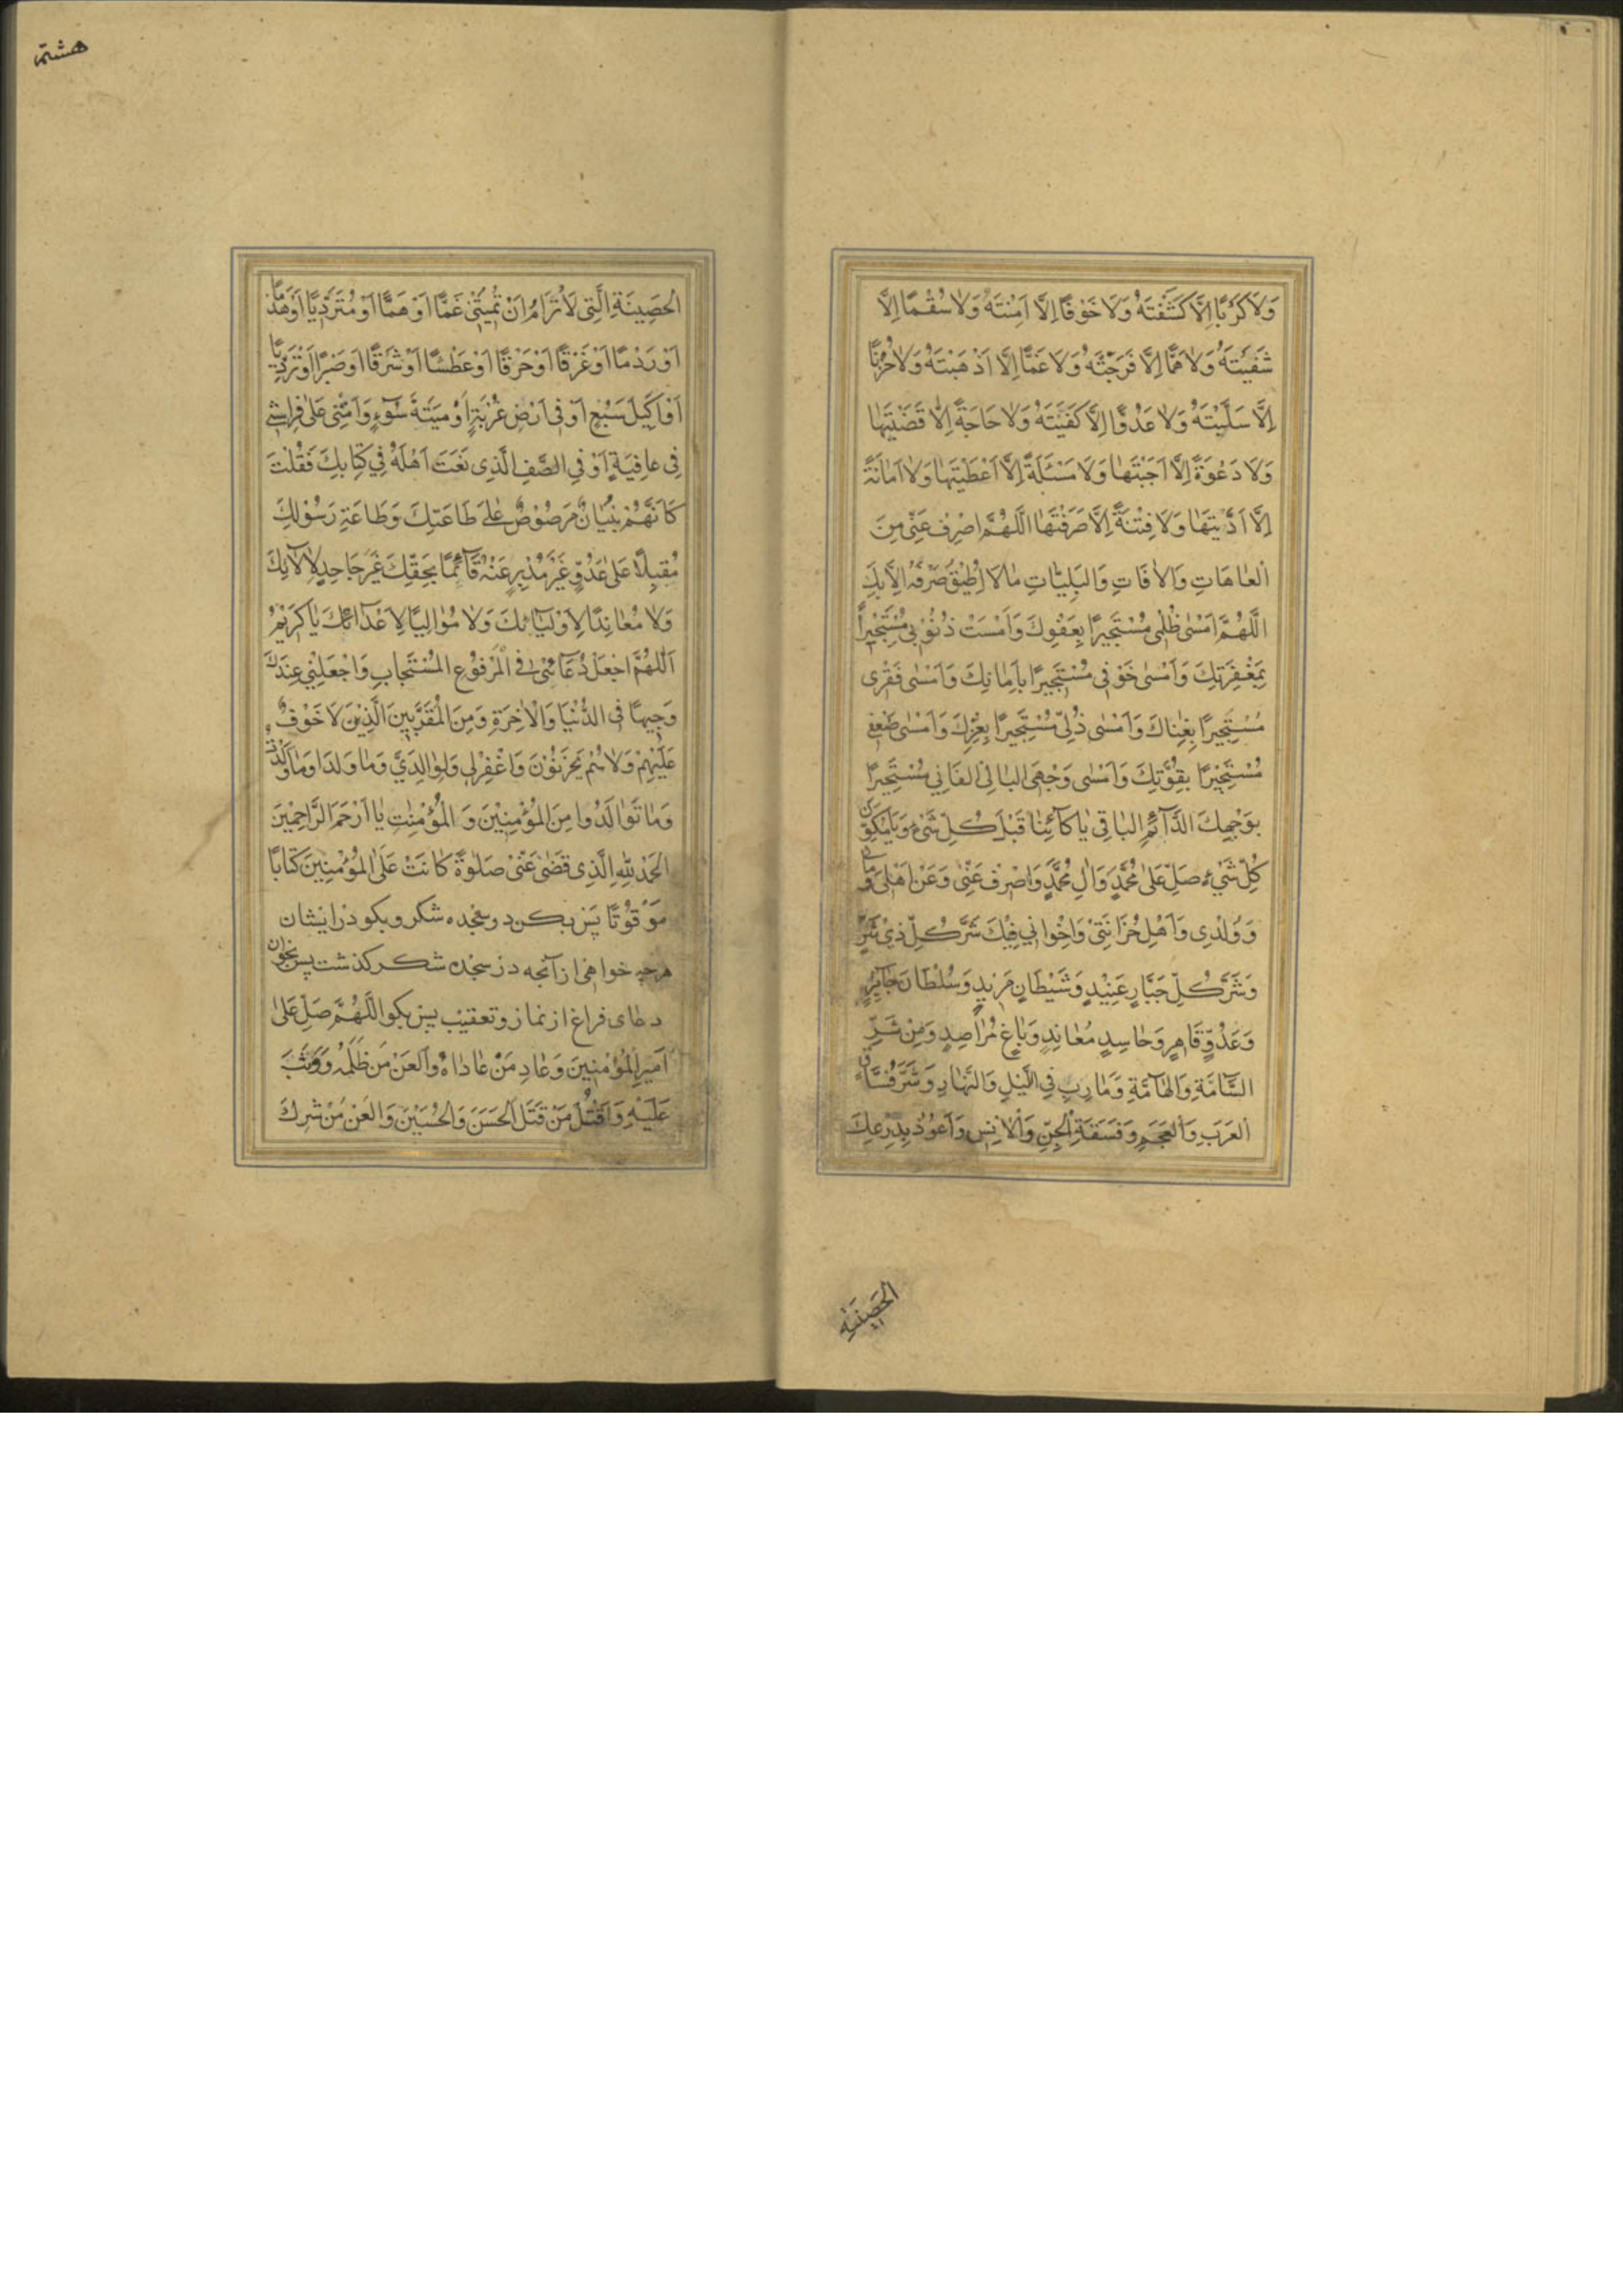 وَلَا كَرْبًا اِلَّا كَشَفْتَهُ وَلَا خَوْفًا اِلَّا اٰمَنْتَهُ وَلَا سُقْمًا اِلَّا
شَفَيْتَهُ وَلَا هَمًّا اِلَّا فَرَّجْتَهُ وَلَا غَمًّا اِلَّا اَذْهَبْتَهُ وَلَا حُزْنًا
اِلَّا سَلَّيْتَهُ وَلَا عَدُوًّا اِلَّا كَفَيْتَهُ وَلَا حَاجَةً اِلَّا قَضَيْتَهَا
وَلَا دَعْوَةً اِلَّا اَجَبْتَهَا وَلَا مَسْئَلَةً اِلَّا اَعْطَيْتَهَا وَلَا اَمَانَةً
اِلَّا اَدَّيْتَهَا وَلَا فِتْنَةً اِلَّا صَرَفْتَهَا اللَّهُمَّ اصْرِفْ عَنِّي مِنَ
الْعَاهَاتِ وَالْاٰفَاتِ وَالْبَلِيَّاتِ مَا لَا اُطِيْقُ صَرْفَهُ اِلَّا بِكَ
اللَّهُمَّ اَمْسٰى ظُلْمِي مُسْتَجِيرًا بِعَفْوِكَ وَاَمْسَتْ ذُنُوْبِي مُسْتَجِيْرَةً
بِمَغْفِرَتِكَ وَاَمْسٰى خَوْفِي مُسْتَجِيرًا بِاَمَانِكَ وَاَمْسٰى فَقْرِى
مُسْتَجِيرًا بِغِنَاكَ وَاَمْسٰى ذُلِّى مُسْتَجِيرًا بِعِزِّكَ وَاَمْسٰى ضَعْفِى
مُسْتَجِيْرًا بِقُوَّتِكَ وَاَمْسٰى وَجْهِىَ الْبَالِى الْفَانِي مُسْتَجِيرًا
بِوَجْهِكَ الدَّآئِمِ الْبَاقِي يَا كَآئِنًا قَبْلَ كُلِّ شَيْءٍ وَيَا مُكَوِّنَ
كُلِّ شَيْءٍ صَلِّ عَلٰى مُحَمَّدٍ وَاٰلِ مُحَمَّدٍ وَاصْرِفْ عَنِّى وَعَنْ اَهْلِى وَمَالِى
وَوُلْدِى وَاَهْلِ حُزَانَتِى وَاِخْوَانِي فِيْكَ شَرَّ كُلِّ ذِي شَرٍّ
وَشَرَّ كُلِّ جَبَّارٍ عَنِيْدٍ وَشَيْطَانٍ مَرِيْدٍ وَسُلْطَانٍ جَآئِرٍ
وَعَدُوٍّ قَاهِرٍ وَحَاسِدٍ مُعَانِدٍ وَبَاغٍ مُرَاصِدٍ وَمِنْ شَرِّ
السَّآمَّةِ وَالْهَآمَّةِ وَمَا دَبَّ فِي اللَّيْلِ وَالنَّهَارِ وَشَرِّ فُسَّاقِ
الْعَرَبِ وَالْعَجَمِ وَفَسَقَةِ الْجِنِّ وَالْاِنْسِ وَاَعُوْذُ بِدِرْعِكَ
الحَصِينَة
هشتم
الْحَصِينَةِ الَّتِى لَا تُرَامُ اَنْ تُمِيتَنِى غَمًّا اَوْ هَمًّا اَوْ مُتَرَدِّيًا اَوْ هَدْمًا
اَوْ رَدْمًا اَوْ غَرَقًا اَوْ حَرْقًا اَوْ عَطَشًا اَوْ شَرَقًا اَوْ صَبْرًا اَوْ تَرَدِّيًا
اَوْ اَكِيلَ سَبُعٍ اَوْ فِى اَرْضِ غُرْبَةٍ اَوْ مِيتَةَ سُوٓءٍ وَاَمِتْنِى عَلٰى فِرَاشِى
فِى عَافِيَةٍ اَوْ فِى الصَّفِّ الَّذِى نَعَتَّ اَهْلَهُ فِي كِتَابِكَ فَقُلْتَ
كَاَنَّهُمْ بُنْيَانٌ مَرْصُوْصٌ عَلٰى طَاعَتِكَ وَطَاعَةِ رَسُوْلِكَ
مُقْبِلًا عَلٰى عَدُوِّكَ غَيْرَ مُدْبِرٍ عَنْهُ قَآئِمًا بِحَقِّكَ غَيْرَ جَاحِدٍ لِاٰلَآئِكَ
وَلَا مُعَانِدًا لِاَوْلِيَآئِكَ وَلَا مُوَالِيًا لِاَعْدَآئِكَ يَا كَرِيْمُ
اَللّٰهُمَّ اجْعَلْ دُعَآئِى فِى الْمَرْفُوْعِ الْمُسْتَجَابِ وَاجْعَلْنِي عِنْدَكَ
وَجِيهًا فِى الدُّنْيَا وَالْاٰخِرَةِ وَمِنَ الْمُقَرَّبِينَ الَّذِيْنَ لَا خَوْفٌ
عَلَيْهِمْ وَلَا هُمْ يَحْزَنُوْنَ وَاغْفِرْ لِى وَلِوَالِدَيَّ وَمَا وَلَدَا وَمَا وَلَدْتُ
وَمَا تَوَالَدُوا مِنَ الْمُؤْمِنِيْنَ وَالْمُؤْمِنَاتِ يَا اَرْحَمَ الرَّاحِمِيْنَ
الْحَمْدُ لِلّٰهِ الَّذِى قَضٰى عَنِّىْ صَلٰوةً كَانَتْ عَلَى الْمُؤْمِنِيْنَ كِتَابًا
مَوْقُوْتًا پس بكن دو سجده شكر و بكو در ايشان
هرچه خواهى از آنچه در سجده شكر كذشت پس بخوان
دعاى فراغ از نماز و تعقيب پس بكو اللَّهُمَّ صَلِّ عَلٰى
اَمِيرِ الْمُؤْمِنِينَ وَعَادِ مَنْ عَادَاهُ وَالْعَنْ مَنْ ظَلَمَهُ وَوَثَبَ
عَلَيْهِ وَاقْتُلْ مَنْ قَتَلَ الْحَسَنَ وَالْحُسَيْنَ وَالْعَنْ مَنْ شَرِكَ